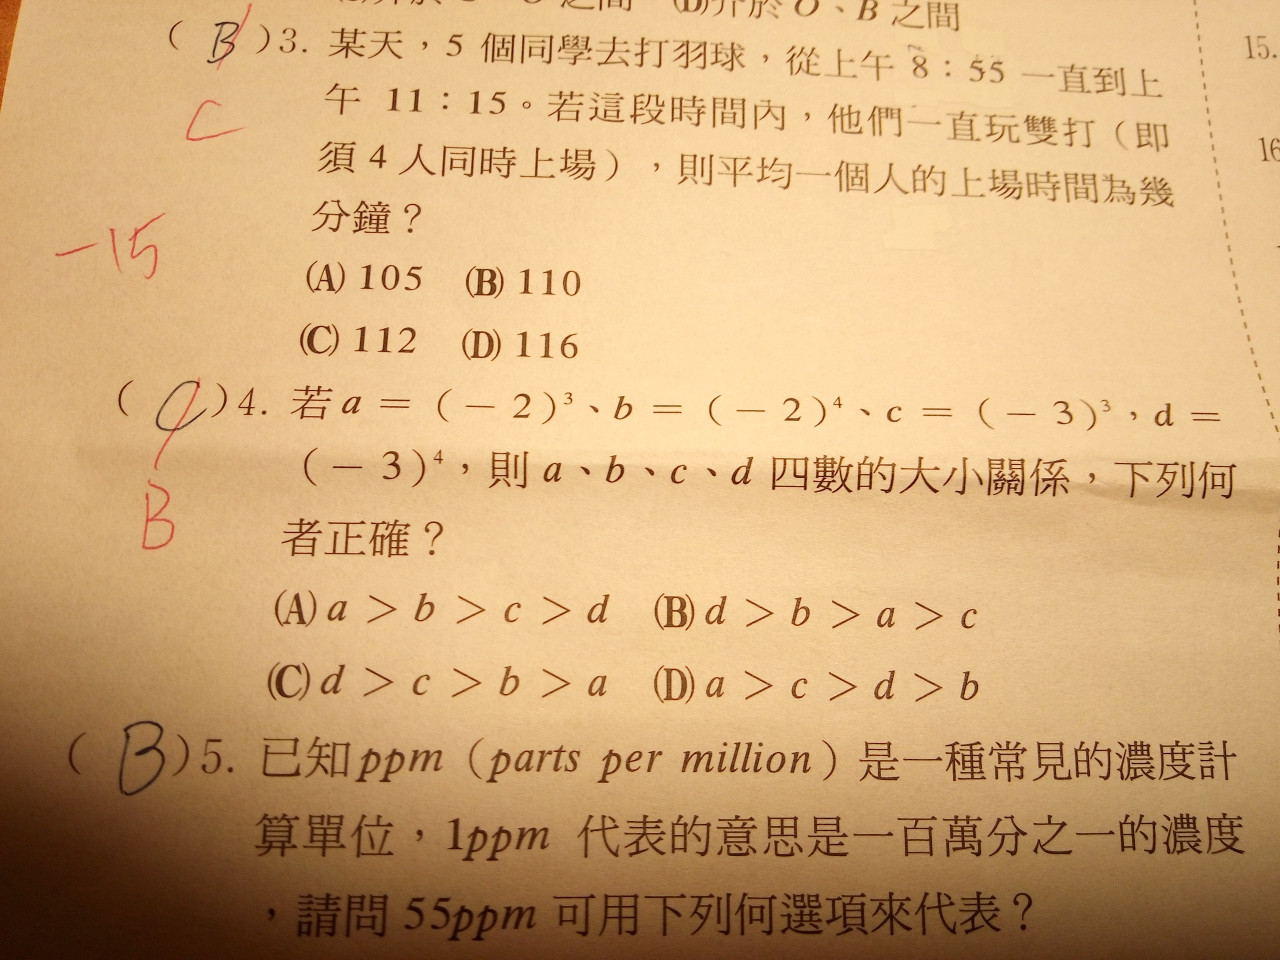 (D)介於 O、B 之間
( B )3. 某天,5 個同學去打羽球,從上午 8:55 一直到上
午 11:15。若這段時間內,他們一直玩雙打(即
須 4 人同時上場),則平均一個人的上場時間為幾
分鐘?
C
-15
(A) 105 (B) 110
(C) 112 (D) 116
( C )4. 若 a = (-2)³、b = (-2)⁴、c = (-3)³,d =
(-3)⁴,則 a、b、c、d 四數的大小關係,下列何
者正確?
B
(A) a > b > c > d (B) d > b > a > c
(C) d > c > b > a (D) a > c > d > b
( B )5. 已知ppm(parts per million)是一種常見的濃度計
算單位,1ppm 代表的意思是一百萬分之一的濃度
,請問 55ppm 可用下列何選項來代表?
15.
16